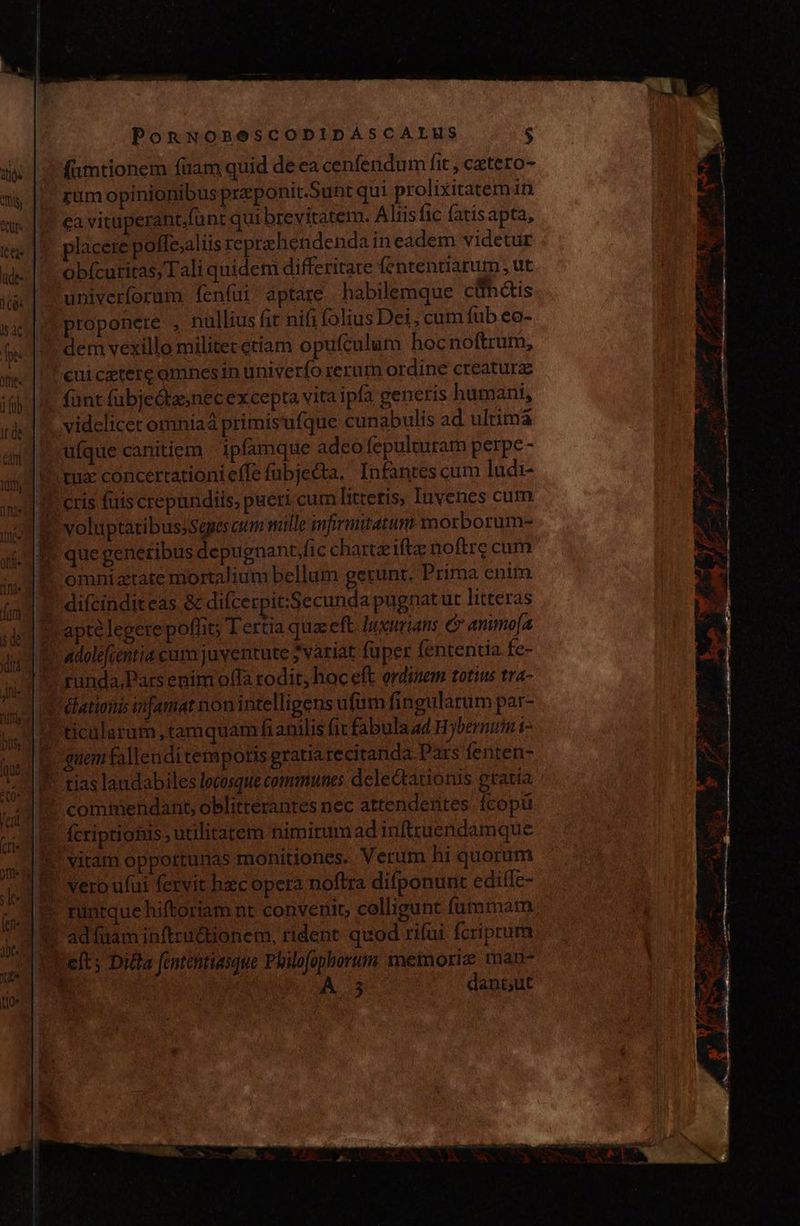 PORNOBOSCODIDASCALUS 5
ſumtionem ſuam, quid de ea cenſendum ſit, cætero-
rum opinionibus præponit. Sunt qui prolixitatem in
ea vituperant, ſunt qui brevitatem. Aliis ſic ſatis apta,
placere poſſe, aliis repræhendenda in eadem videtur
obſcuritas, Tali quidem differitate ſententiarum, ut
univerſorum ſenſui aptare habilemque cũnctis
proponere, nullius ſit niſi ſolius Dei, cum ſub eo-
dem vexillo militet etiam opuſculum hoc noſtrum,
cui cætere omnes in univerſo rerum ordine creaturæ
ſunt ſubjectæ, nec excepta vita ipſa generis humani,
videlicet omnia à primis uſque cunabulis ad ultimã
uſque canitiem ipſamque adeo ſepulturam perpe-
tuæ concertationi eſſe ſubjecta. Infantes cum ludi-
cris ſuis crepundiis, pueri cum litteris, Iuvenes cum
voluptatibus, Senes cum mille infirmitatum morborum-
que generibus depugnant, ſic chartæ iſtæ noſtrę cum
omni ætate mortalium bellum gerunt. Prima enim
diſcindit eas & diſcerpit: Secunda pugnat ut litteras
aptè legere poſſit; Tertia quæ eſt luxurians & animoſa
adoleſcentia cum juventute; variat ſuper ſententia ſe-
runda. Pars enim oſſa rodit, hoc eſt ordinem totius tra-
ctationis infamat non intelligens uſum ſingularum par-
ticularum, tamquam ſi anilis ſit fabula ad Hybernum i-
gnem fallendi temporis gratia recitanda. Pars ſenten-
tias laudabiles locosque communes delectationis gratia
commendant, oblitterantes nec attendentes ſcopũ
ſcriptionis, utilitatem nimirum ad inſtruendamque
vitam opportunas monitiones. Verum hi quorum
vero uſui ſervit hæc opera noſtra diſponunt ediſſe-
runtque hiſtoriam ut convenit, colligunt ſummam
ad ſuam inſtructionem, rident quod riſui ſcriptum
eſt; Dicta ſententiasque Philoſophorum memoriæ man-
A 3 dant, ut